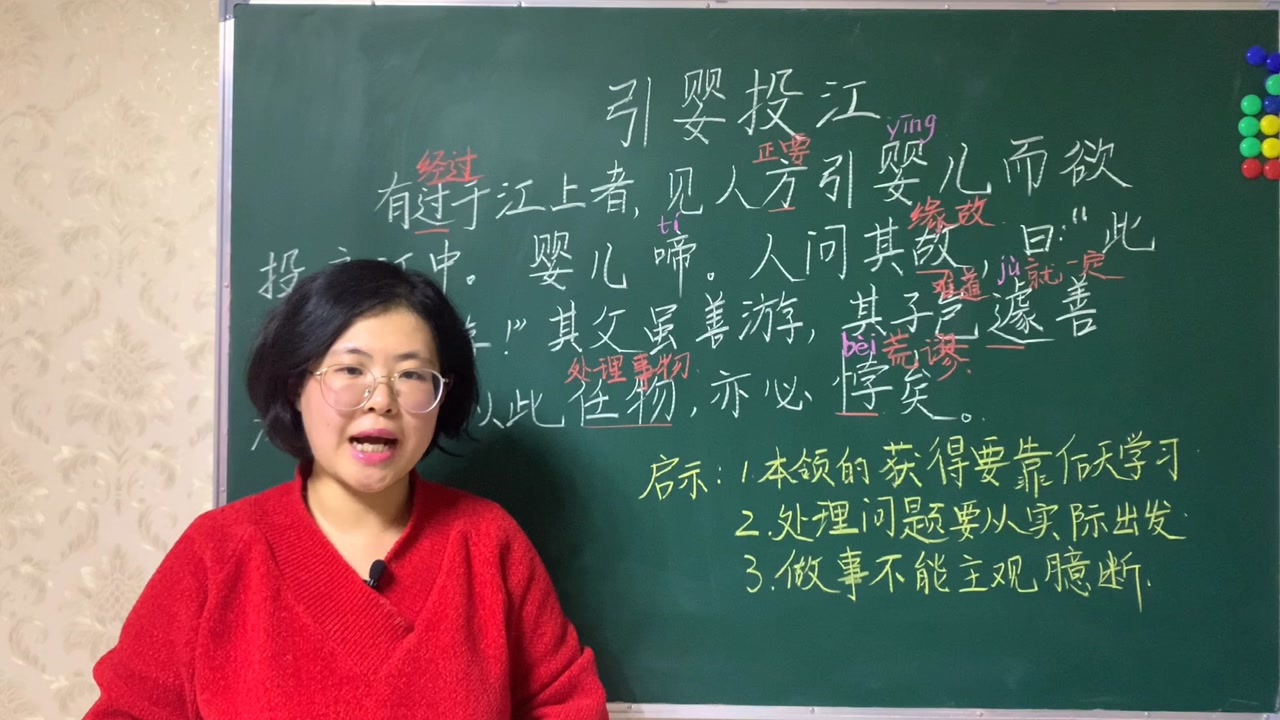 引婴投江
yīng
经过 正要
有过于江上者,见人方引婴儿而欲
tí 缘故
投 中。婴儿啼。人问其故,曰:“此
难道 jù 就一定
!”其父虽善游,其子岂遽善
处理事物 bèi 荒谬
以此任物,亦必悖矣。
启示:1.本领的获得要靠后天学习
2.处理问题要从实际出发.
3.做事不能主观臆断.